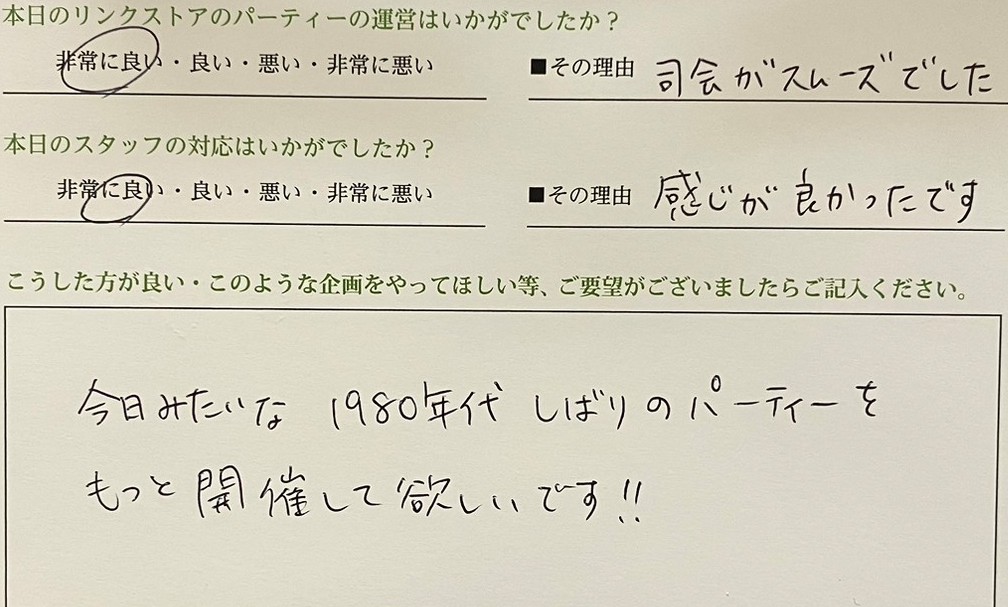 本日のリンクストアのパーティーの運営はいかがでしたか？
非常に良い・良い・悪い・非常に悪い ■その理由 司会がスムーズでした
本日のスタッフの対応はいかがでしたか？
非常に良い・良い・悪い・非常に悪い ■その理由 感じが良かったです
こうした方が良い・このような企画をやってほしい等、ご要望がございましたらご記入ください。
今日みたいな 1980年代 しばりのパーティーを
もっと開催して欲しいです!!